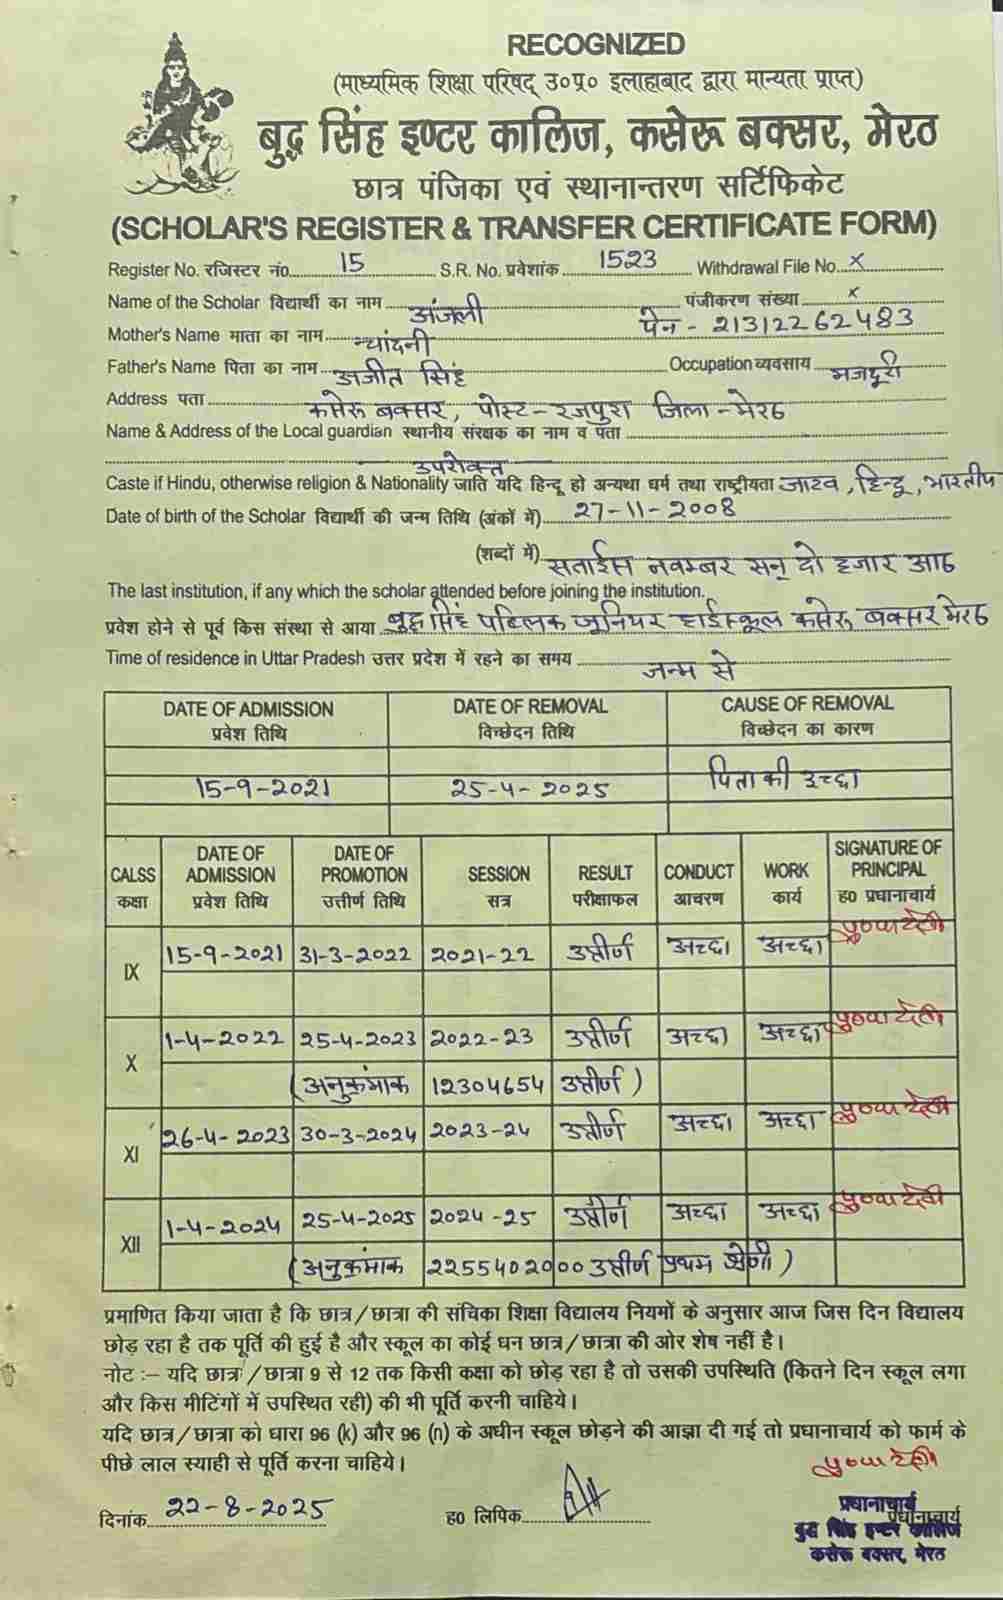 RECOGNIZED
(माध्यमिक शिक्षा परिषद् उ०प्र० इलाहाबाद द्वारा मान्यता प्राप्त)
बुद्ध सिंह इण्टर कालिज, कसेरू बक्सर, मेरठ
छात्र पंजिका एवं स्थानान्तरण सर्टिफिकेट
(SCHOLAR'S REGISTER & TRANSFER CERTIFICATE FORM)
Register No. रजिस्टर नं० 15 S.R. No. प्रवेशांक 1523 Withdrawal File No. x
Name of the Scholar विद्यार्थी का नाम अंजली पंजीकरण संख्या x
Mother's Name माता का नाम चांदनी पेन - 21312262483
Father's Name पिता का नाम अजीत सिंह Occupation व्यवसाय मजदूरी
Address पता कसेरू बक्सर, पोस्ट-रजपुरा जिला-मेरठ
Name & Address of the Local guardian स्थानीय संरक्षक का नाम व पता
उपरोक्त
Caste if Hindu, otherwise religion & Nationality जाति यदि हिन्दू हो अन्यथा धर्म तथा राष्ट्रीयता जाटव, हिन्दू, भारतीय
Date of birth of the Scholar विद्यार्थी की जन्म तिथि (अंकों में) 27-11-2008
(शब्दों में) सताईस नवम्बर सन् दो हजार आठ
The last institution, if any which the scholar attended before joining the institution.
प्रवेश होने से पूर्व किस संस्था से आया बुद्ध सिंह पब्लिक जूनियर हाईस्कूल कसेरू बक्सर मेरठ
Time of residence in Uttar Pradesh उत्तर प्रदेश में रहने का समय जन्म से
DATE OF ADMISSION DATE OF REMOVAL CAUSE OF REMOVAL
प्रवेश तिथि विच्छेदन तिथि विच्छेदन का कारण
15-9-2021 25-4-2025 पिता की इच्छा
CALSS DATE OF ADMISSION DATE OF PROMOTION SESSION RESULT CONDUCT WORK SIGNATURE OF PRINCIPAL
कक्षा प्रवेश तिथि उत्तीर्ण तिथि सत्र परीक्षाफल आचरण कार्य ह० प्रधानाचार्य
IX 15-9-2021 31-3-2022 2021-22 उत्तीर्ण अच्छा अच्छा पुण्या देवी
X 1-4-2022 25-4-2023 2022-23 उत्तीर्ण अच्छा अच्छा पुण्या देवी
(अनुक्रमांक 12304654 उत्तीर्ण)
XI 26-4-2023 30-3-2024 2023-24 उत्तीर्ण अच्छा अच्छा पुण्या देवी
XII 1-4-2024 25-4-2025 2024-25 उत्तीर्ण अच्छा अच्छा पुण्या देवी
(अनुक्रमांक 2255402000 उत्तीर्ण प्रथम श्रेणी)
प्रमाणित किया जाता है कि छात्र/छात्रा की संचिका शिक्षा विद्यालय नियमों के अनुसार आज जिस दिन विद्यालय
छोड़ रहा है तक पूर्ति की हुई है और स्कूल का कोई धन छात्र/छात्रा की ओर शेष नहीं है।
नोट :– यदि छात्र/छात्रा 9 से 12 तक किसी कक्षा को छोड़ रहा है तो उसकी उपस्थिति (कितने दिन स्कूल लगा
और किस मीटिंगों में उपस्थित रही) की भी पूर्ति करनी चाहिये।
यदि छात्र/छात्रा को धारा 96 (k) और 96 (n) के अधीन स्कूल छोड़ने की आज्ञा दी गई तो प्रधानाचार्य को फार्म के
पीछे लाल स्याही से पूर्ति करना चाहिये।
पुण्या देवी
दिनांक 22-8-2025 ह० लिपिक प्रधानाचार्य
प्रधानाचार्य
बुद्ध सिंह इण्टर कालिज
कसेरू बक्सर, मेरठ